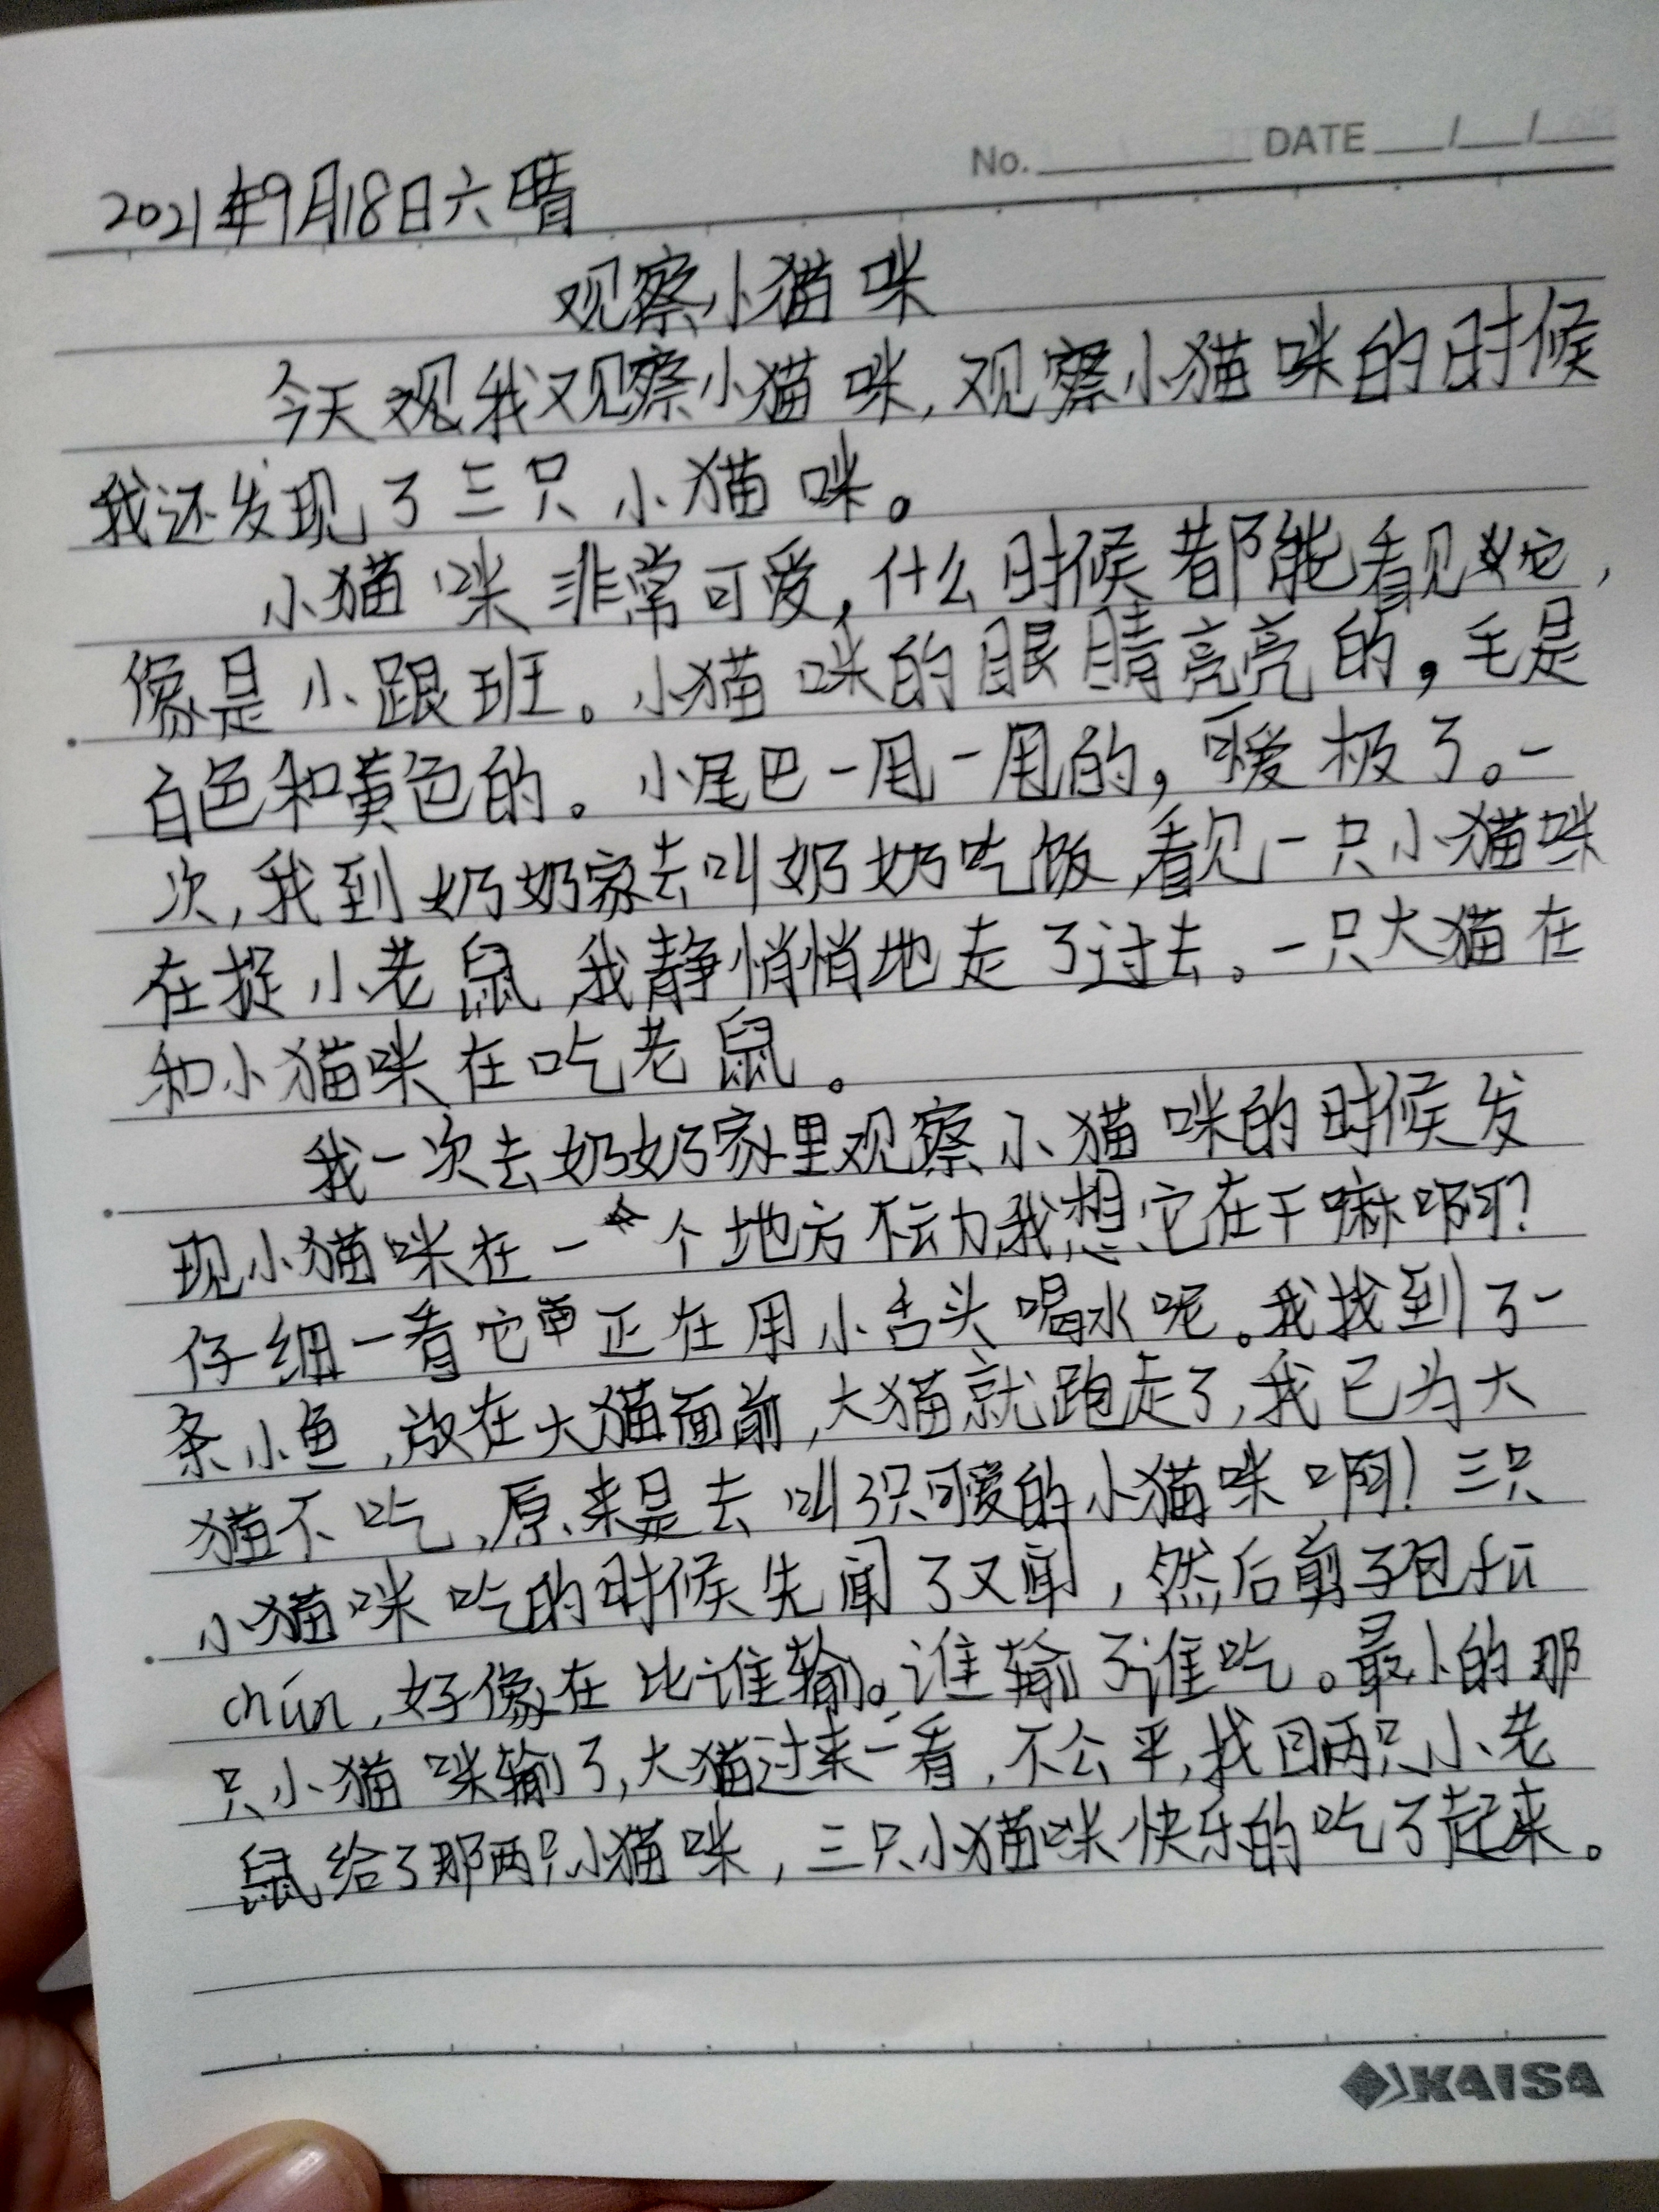 No. DATE / /
2021年9月18日六晴
观察小猫咪
今天观我观察小猫咪,观察小猫咪的时候
我还发现了三只小猫咪。
小猫咪非常可爱,什么时候都能看见它,
像是小跟班。小猫咪的眼睛亮亮的,毛是
白色和黄色的。小尾巴一甩一甩的,可爱极了。一
次,我到奶奶家去叫奶奶吃饭,看见一只小猫咪
在捉小老鼠,我静悄悄地走了过去。一只大猫在
和小猫咪在吃老鼠。
我一次去奶奶家里观察小猫咪的时候发
现小猫咪在一个地方不动,我想它在干嘛啊?
仔细一看它正在用小舌头喝水呢。我找到了一
条小鱼,放在大猫面前,大猫就跑走了,我已为大
猫不吃,原来是去叫3只可爱的小猫咪啊!三只
小猫咪吃的时候先闻了又闻,然后剪子包fu
chún,好像在比谁输。谁输了谁吃。最小的那
只小猫咪输了,大猫过来一看,不公平,找回两只小老
鼠给了那两只小猫咪,三只小猫咪快乐的吃了起来。
KAISA